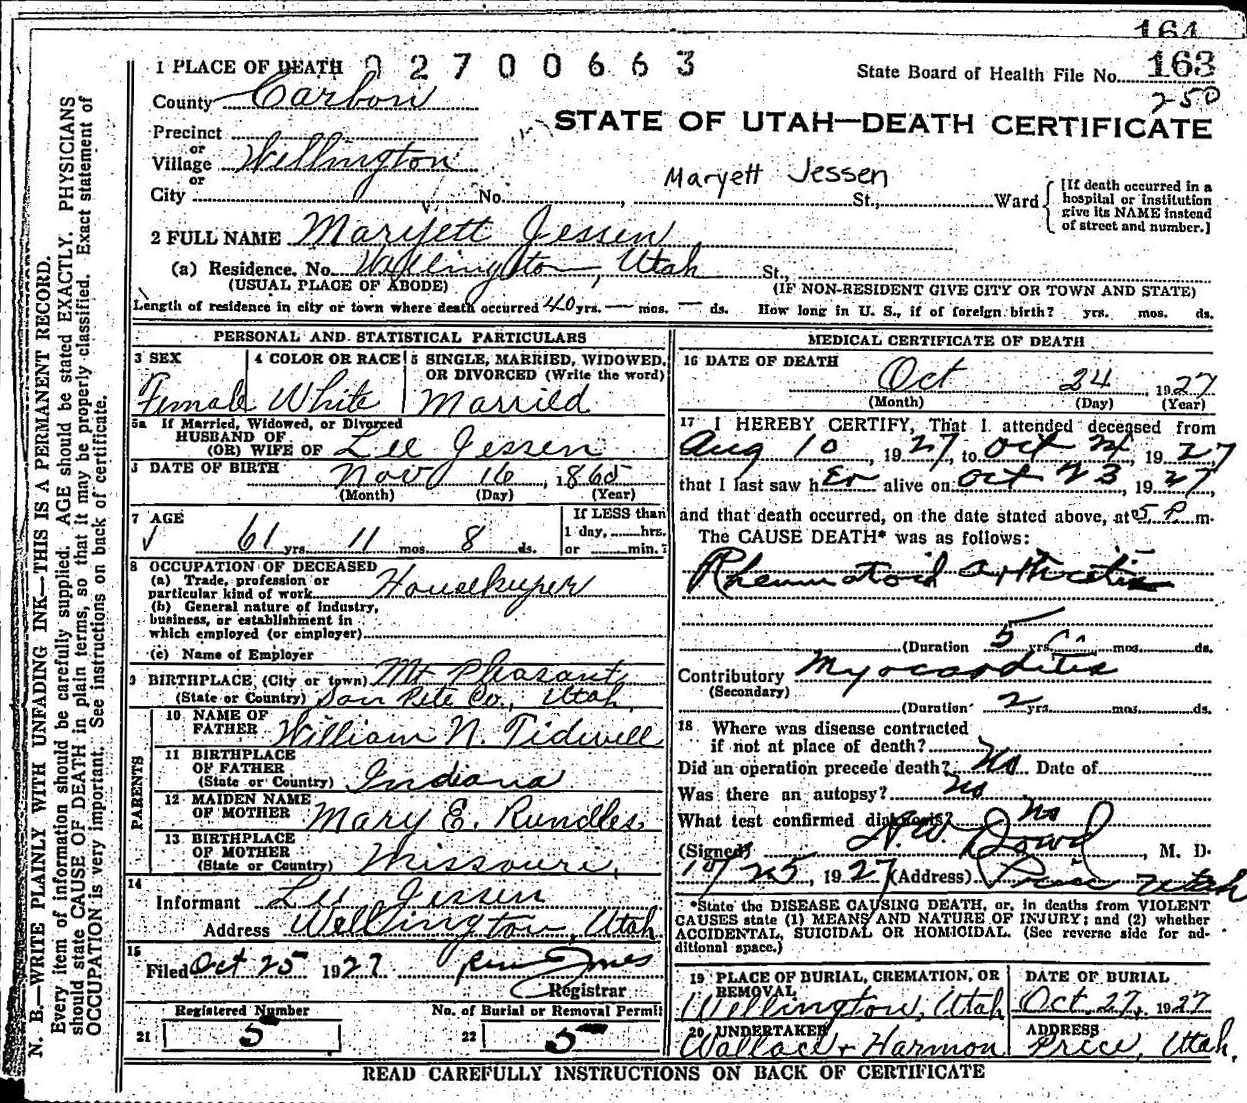 164
1 PLACE OF DEATH 02700663
State Board of Health File No. 163
250
County Carbon
STATE OF UTAH—DEATH CERTIFICATE
Precinct
or
Village Wellington
or
Maryett Jessen
City No. , St., Ward
[If death occurred in a hospital or institution give its NAME instead of street and number.]
2 FULL NAME Maryett Jessen
(a) Residence. No. Wellington, Utah St.,
(USUAL PLACE OF ABODE) (IF NON-RESIDENT GIVE CITY OR TOWN AND STATE)
Length of residence in city or town where death occurred 40 yrs. — mos. — ds. How long in U. S., if of foreign birth? yrs. mos. ds.
PERSONAL AND STATISTICAL PARTICULARS
3 SEX Female
4 COLOR OR RACE White
5 SINGLE, MARRIED, WIDOWED, OR DIVORCED (Write the word) Married
5a If Married, Widowed, or Divorced
HUSBAND OF
(OR) WIFE OF Lee Jessen
DATE OF BIRTH Nov 16, 1865
(Month) (Day) (Year)
7 AGE
61 yrs. 11 mos. 8 ds.
If LESS than 1 day, hrs. or min.?
8 OCCUPATION OF DECEASED
(a) Trade, profession or particular kind of work Housekeeper
(b) General nature of industry, business, or establishment in which employed (or employer)
(c) Name of Employer
9 BIRTHPLACE (City or town) Mt Pleasant
(State or Country) San Pete Co., Utah
PARENTS
10 NAME OF FATHER William N. Tidwell
11 BIRTHPLACE OF FATHER (State or Country) Indiana
12 MAIDEN NAME OF MOTHER Mary E. Rundles
13 BIRTHPLACE OF MOTHER (State or Country) Missouri
14 Informant Lee Jessen
Address Wellington, Utah
15 Filed Oct 25 1927
Registrar
Registered Number
21 5
No. of Burial or Removal Permit
22 5
MEDICAL CERTIFICATE OF DEATH
16 DATE OF DEATH
Oct 24 1927
(Month) (Day) (Year)
17 I HEREBY CERTIFY, That I attended deceased from
Aug 10, 1927, to Oct 24, 1927
that I last saw her alive on Oct 23, 1927,
and that death occurred, on the date stated above, at 5 P m.
The CAUSE DEATH* was as follows:
Rheumatoid arthritis
(Duration 5 yrs. mos. ds.
Contributory Myocarditis
(Secondary)
(Duration 2 yrs. mos. ds.
18 Where was disease contracted
if not at place of death?
Did an operation precede death? No Date of
Was there an autopsy? No
What test confirmed diagnosis? No
(Signed) N.W. Dowd, M. D.
10/25, 1927 (Address) Price Utah
*State the DISEASE CAUSING DEATH, or, in deaths from VIOLENT
CAUSES state (1) MEANS AND NATURE OF INJURY; and (2) whether
ACCIDENTAL, SUICIDAL OR HOMICIDAL. (See reverse side for ad-
ditional space.)
19 PLACE OF BURIAL, CREMATION, OR REMOVAL
Wellington, Utah
DATE OF BURIAL
Oct. 27, 1927
20 UNDERTAKER
Wallace & Harmon
ADDRESS
Price, Utah.
READ CAREFULLY INSTRUCTIONS ON BACK OF CERTIFICATE
N. B.—WRITE PLAINLY WITH UNFADING INK—THIS IS A PERMANENT RECORD.
Every item of information should be carefully supplied. AGE should be stated EXACTLY. PHYSICIANS
should state CAUSE OF DEATH in plain terms, so that it may be properly classified. Exact statement of
OCCUPATION is very important. See instructions on back of certificate.